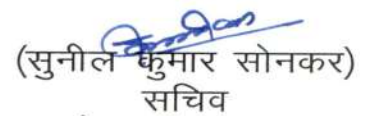 (सुनील कुमार सोनकर)
सचिव